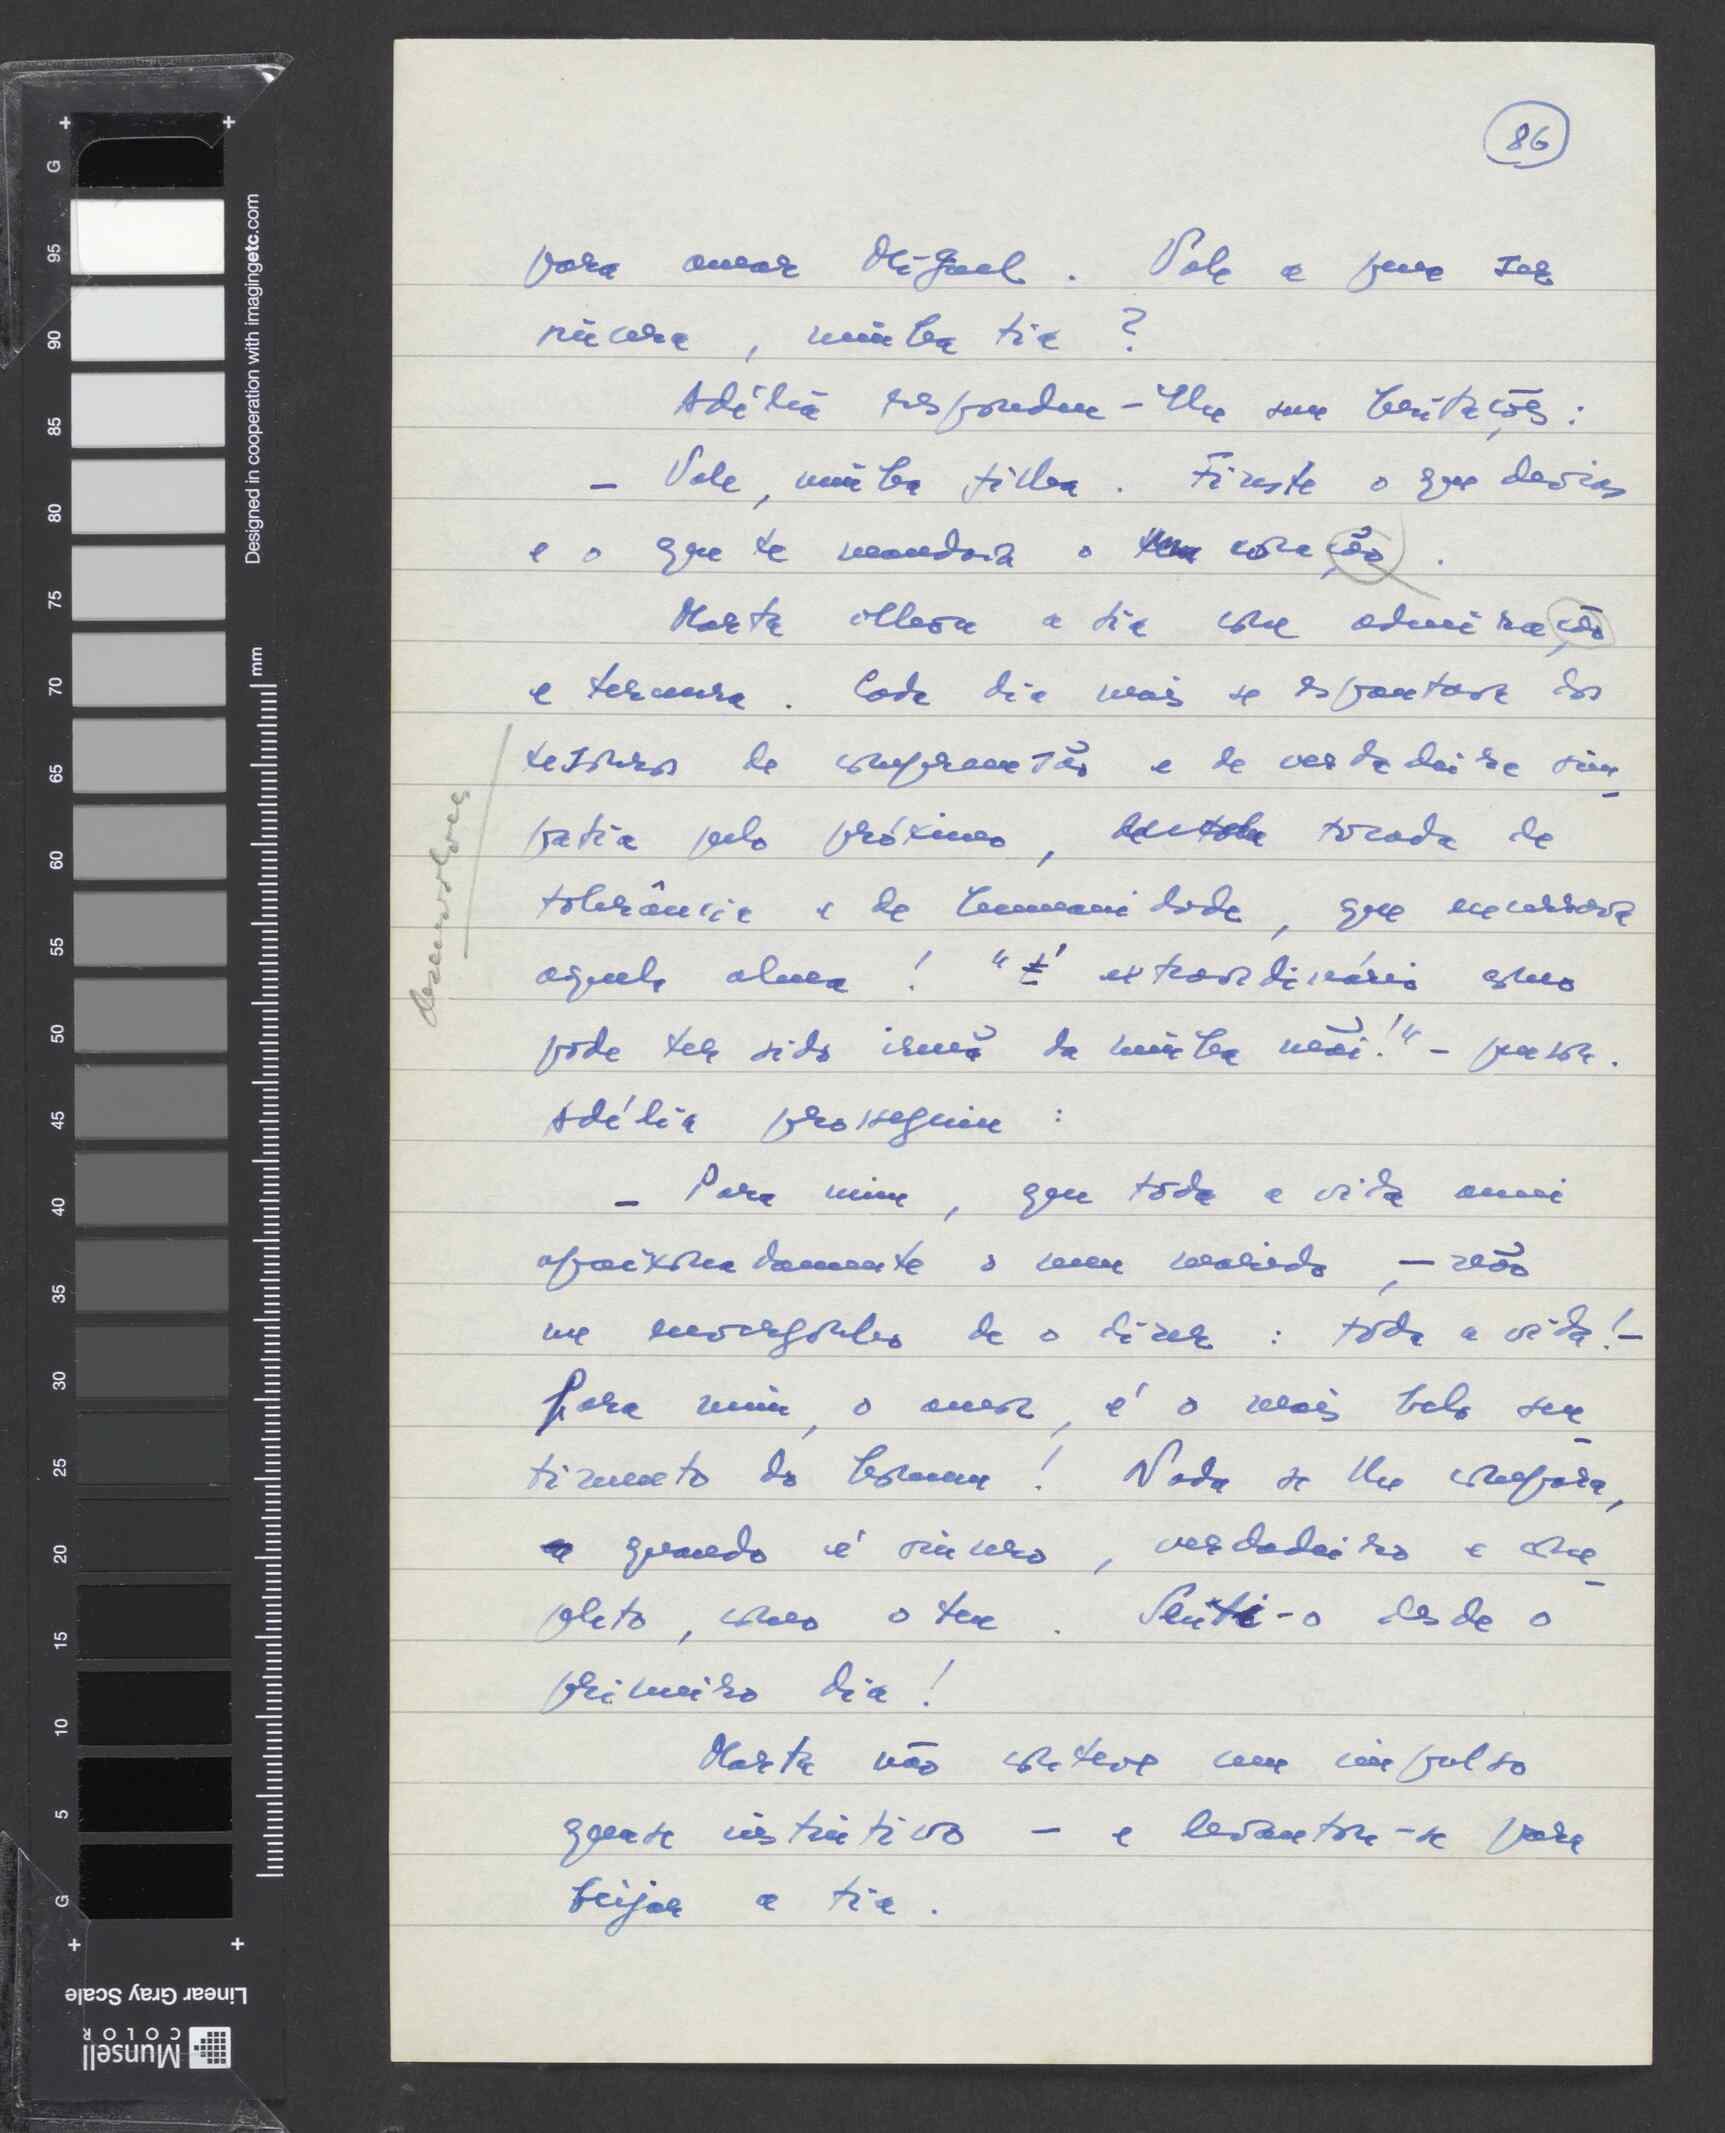 86
para amar Miguel. Vale a pena ser
sincera, minha tia?
Adélia respondeu-lhe sem hesitações:
– Vale, minha filha. Fizeste o que devias
e o que te mandava o teu coração.
Marta olhou a tia com admiração
e ternura. Cada dia mais se espantava dos
tesouros de compreensão e de verdadeira sim-
patia pelo próximo, tocada de
tolerância e de humanidade, que encerrava
aquela alma! "É extraordinário como
pode ter sido irmã da minha mãi!" – pensou.
Adélia prosseguiu:
– Para mim, que tôda a vida amei
apaixonadamente o meu marido, – não
me envergonho de o dizer: tôda a vida! –
Para mim, o amor, é o mais belo sen-
timento do homem! Nada se lhe compara,
quando é sincero, verdadeiro e com-
pleto, como o teu. Senti-o desde o
primeiro dia!
Marta não conteve um impulso
quase instintivo – e levantou-se para
beijar a tia.
desenvolver
Designed in cooperation with imagingetc.com
mm
G 95 90 85 80 75 70 65 60 55 50 45 40 35 30 25 20 15 10 5 G
Linear Gray Scale
Munsell
COLOR